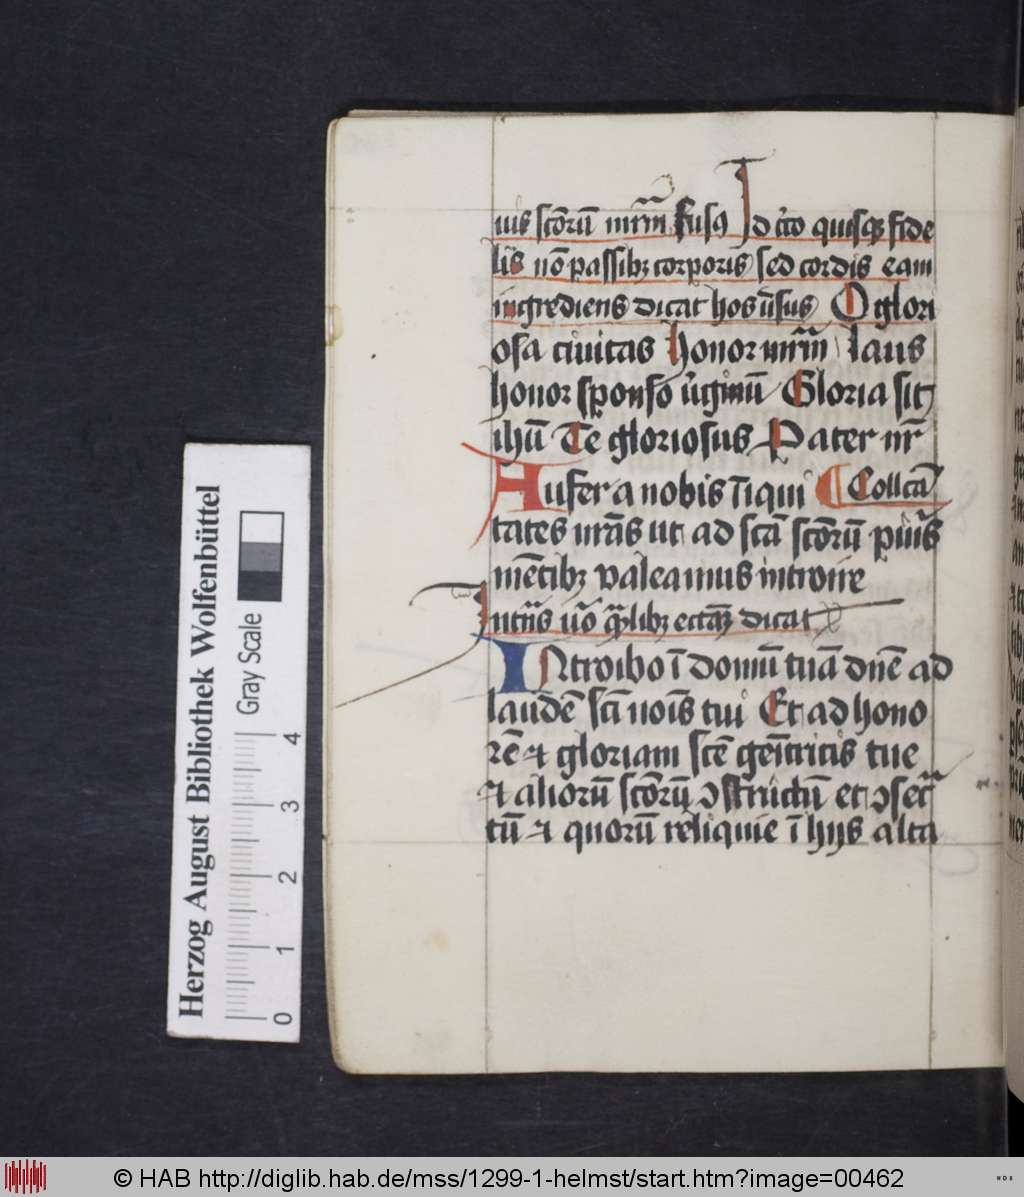 uis sc̄orū mr̄m fusꝯ Idcīto quisqꝫ fide
lis nō passibꝫ corporis sed cordis eam
ingrediens dicat hos ūsus O glori
osa ciuitas honor mr̄m laus
honor sponso ūginū Gloria sit
ihū Te gloriosus Pater nr̄
Aufer a nobis īiqui ¶ Coll̄ca
tates nr̄as ut ad sc̄a sc̄orū puris
mētibꝫ valeamus introire
Intn̄s ūo qͣlibꝫ ectāꝫ dicat
INtroibo ī domū tuā dn̄e ad
laudē sc̄i nōis tui Et ad hono
rē ⁊ gloriam sc̄e genītricis tue
⁊ aliorū sc̄orꝝ ꝯstructū et ꝯsecr̄
tū ⁊ quorū reliquie ī hijs alta
Herzog August Bibliothek Wolfenbüttel
Gray Scale
0 1 2 3 4
© HAB http://diglib.hab.de/mss/1299-1-helmst/start.htm?image=00462